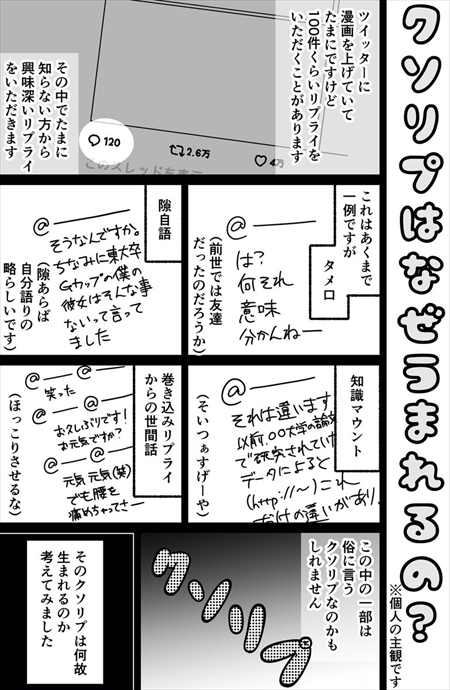 クソリプはなぜうまれるの？
※個人の主観です
ツイッターに
漫画を上げていて
たまにですけど
100件くらいリプライを
いただくことがあります
120
2.6万
4万
このスレッドを表示
その中でたまに
知らない方から
興味深いリプライ
をいただきます
これはあくまで
一例ですが
タメ口
@
は？
何それ
意味
分かんねー
（前世では友達
だったのだろうか）
隙自語
@
そうなんですか。
ちなみに東大卒
Gカップの僕の
彼女はそんな事
ないって言って
ました
（隙あらば
自分語りの
略らしいです）
知識マウント
@
それは違います
以前、〇〇大学の論文
で研究されていて
データによると
(http://〜)これ
だけの違いがあり、
（そいつぁすげーや）
巻き込みリプライ
からの世間話
@
笑った
@ @
お久しぶりです！
お元気ですか？
@ @
元気元気(笑)
でも腰を
痛めちゃってさー
（ほっこりさせるな）
この中の一部は
俗に言う
クソリプなのかも
しれません
クソリプ
そのクソリプは何故
生まれるのか
考えてみました